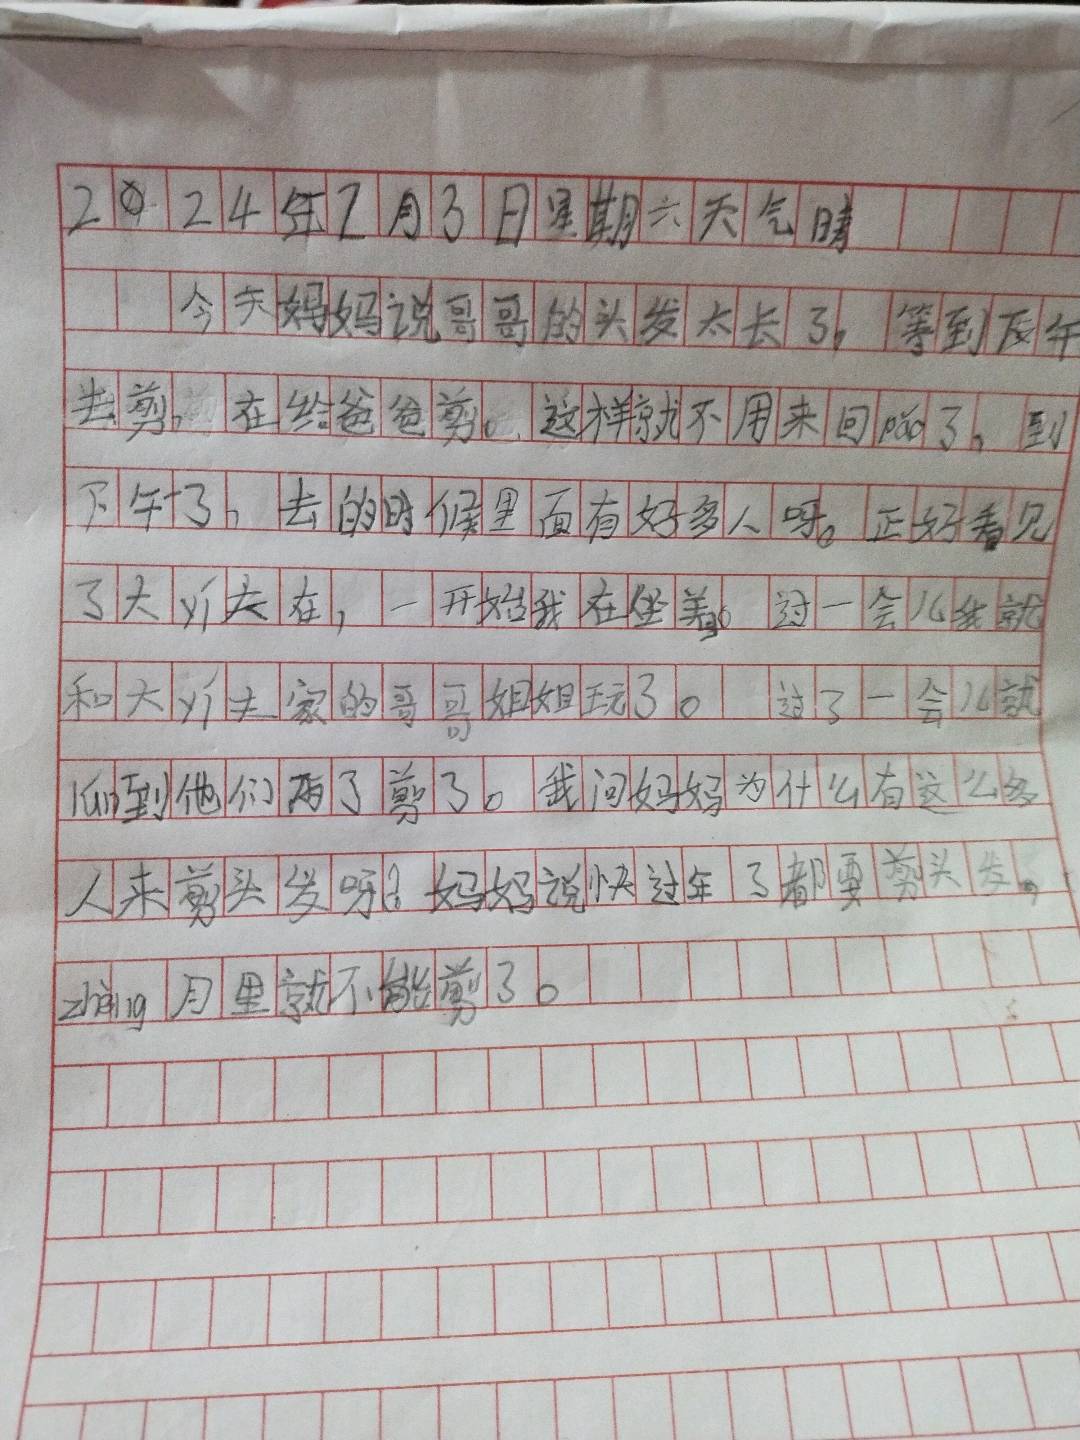 2024年2月3日星期六天气晴
今天妈妈说哥哥的头发太长了,等到下午
去剪,在给爸爸剪。这样就不用来回pǎo了。到
下午了,去的时候里面有好多人呀。正好看见
了大yí夫在,一开始我在坐着。过一会儿我就
和大yí夫家的哥哥姐姐玩了。过了一会儿就
lún到他们两了剪了。我问妈妈为什么有这么多
人来剪头发呀?妈妈说快过年了都要剪头发,
zhēng月里就不能剪了。